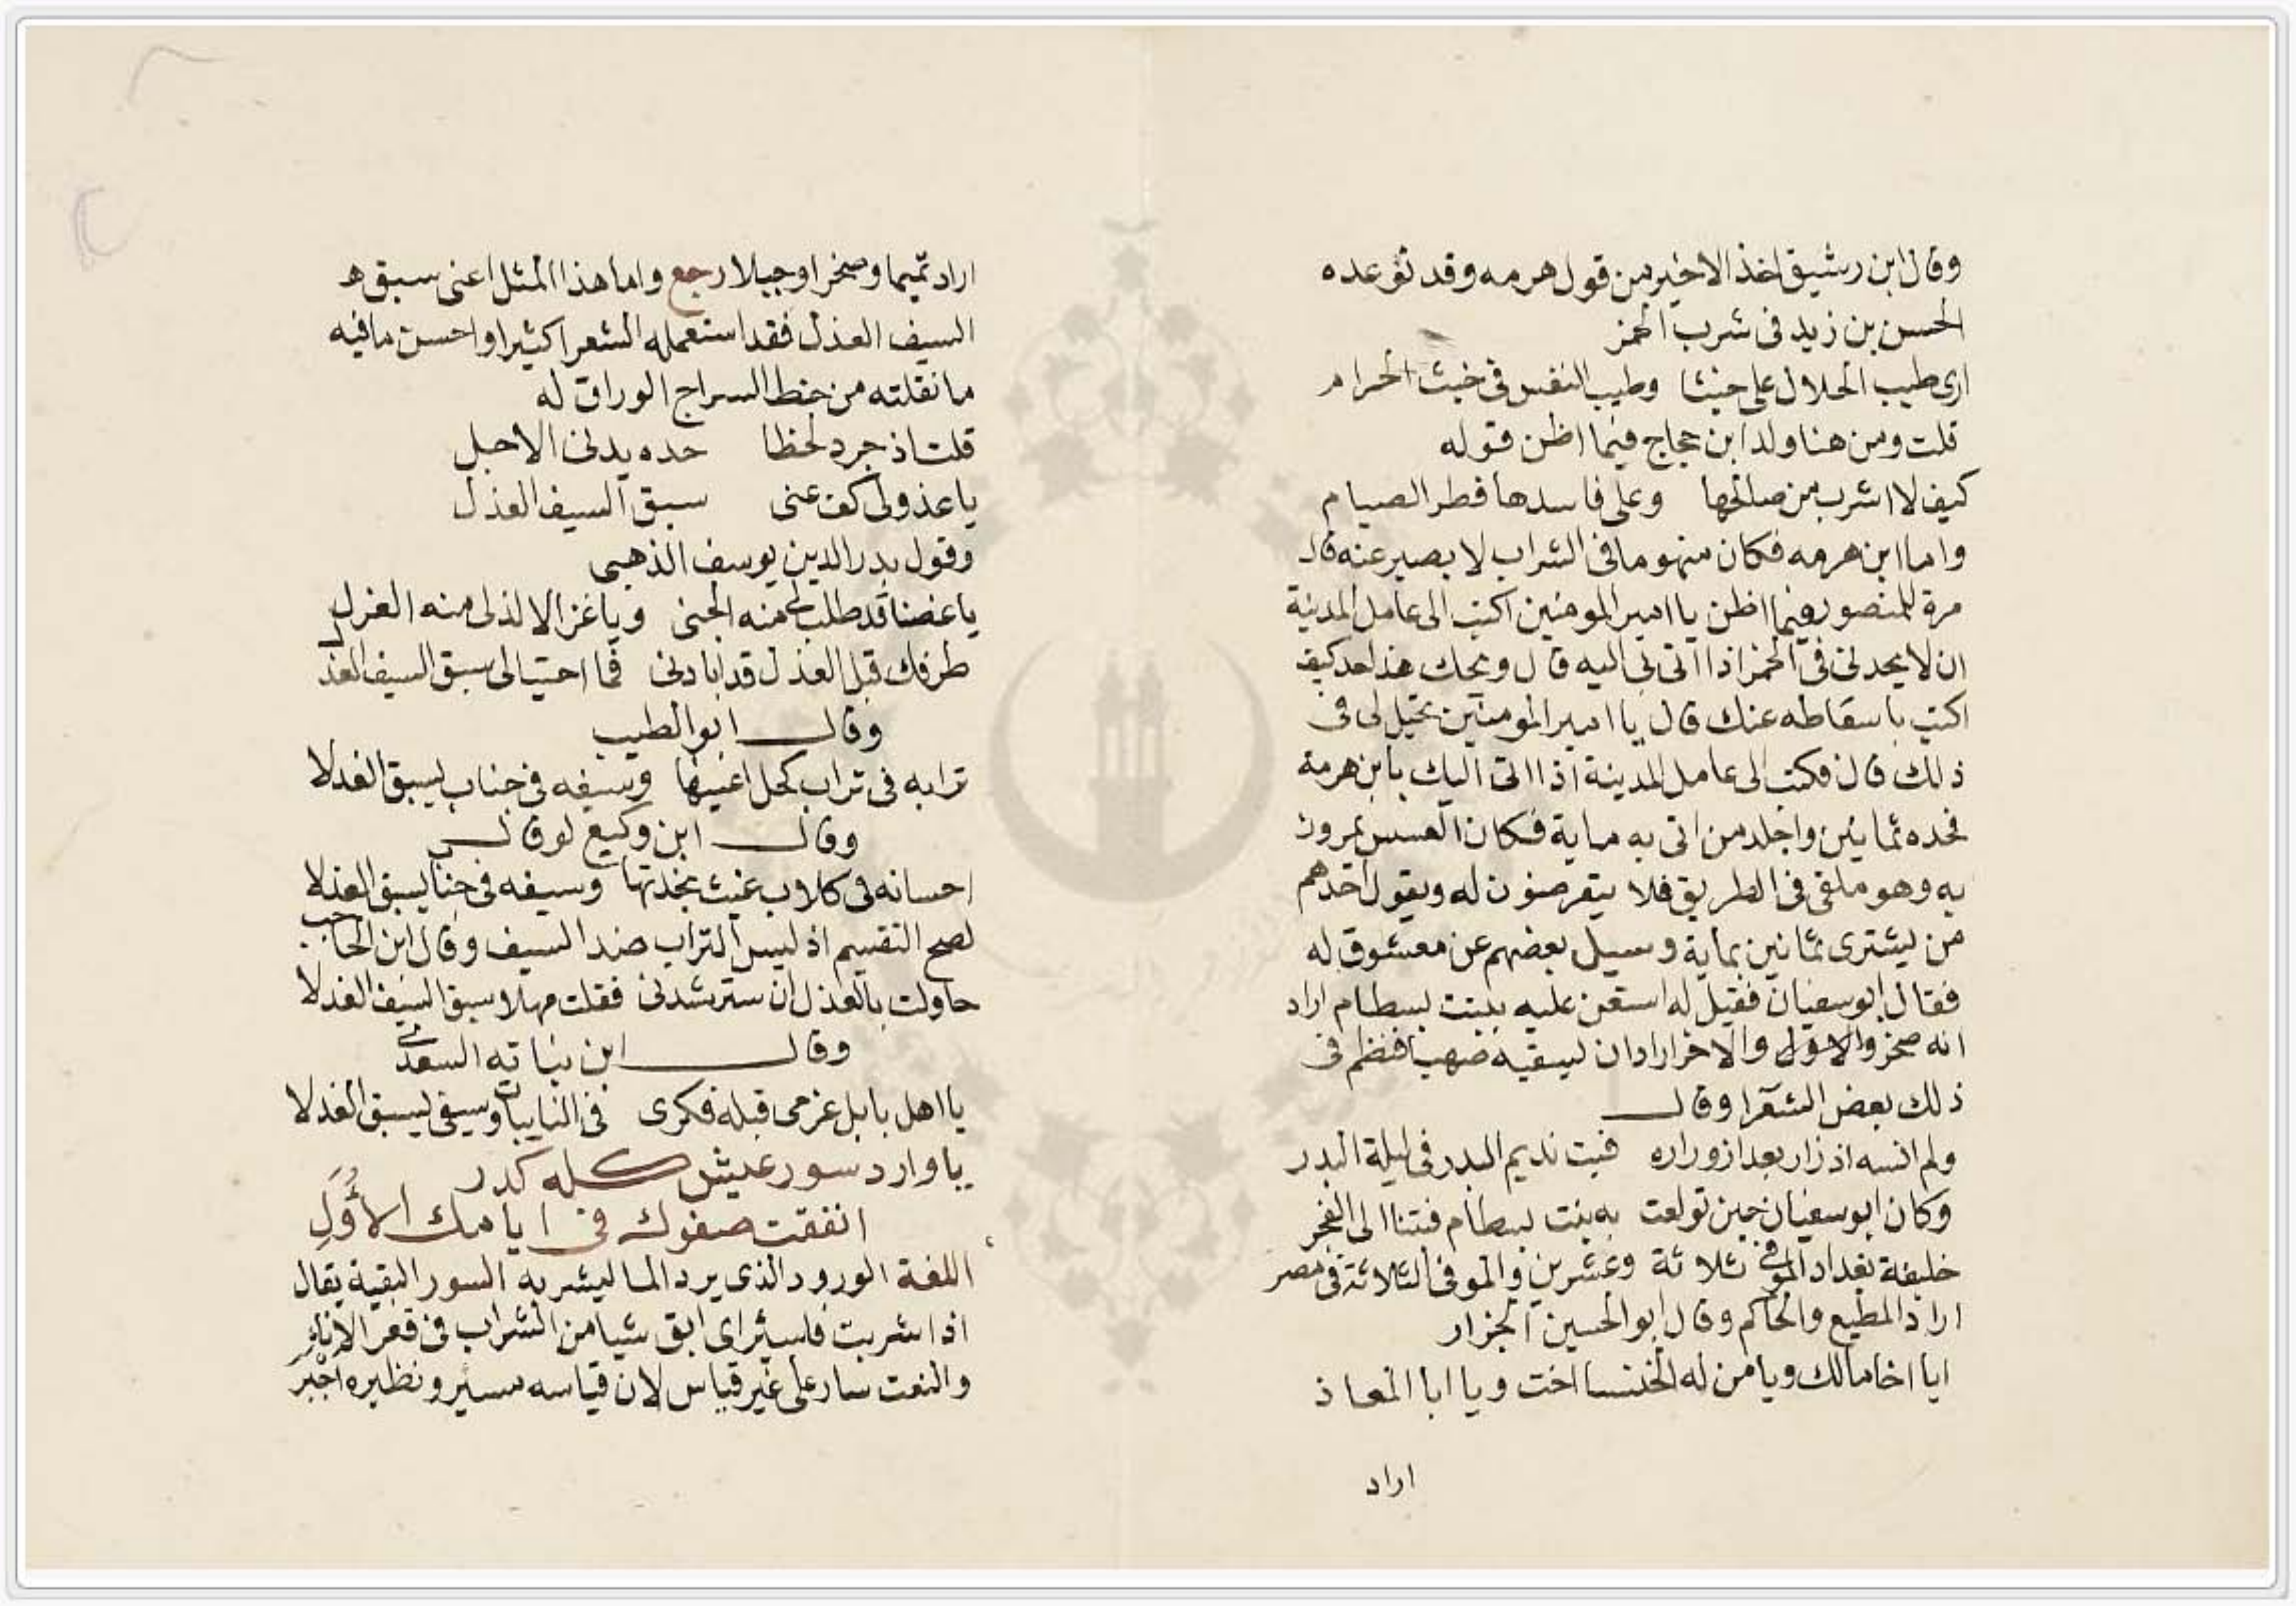 وقال ابن رشيق اخذ الاخير من قول هرمه وقد توعده
الحسن بن زيد فى شرب الخمر
ارى طيب الحلال على خبثا وطيب النفس فى خبث الحرام
قلت ومن هنا ولد ابن حجاج فيما اظن قوله
كيف لا اشرب من صالحها وعلى فاسدها فطر الصيام
واما ابن هرمه فكان منهوما فى الشراب لا يصبر عنه قال
مرة للمنصور فيما اظن يا امير المومنين اكتب الى عامل المدينة
ان لا يحدنى فى الخمر اذا اتى بى اليه قال ويحك هذا حد كيف
اكتب باسقاطه عنك قال يا امير المومنين تحيل لى فى
ذلك قال فكتب الى عامل المدينة اذا اتى اليك بابن هرمة
فحده ثمانين واجلد من اتى به ماية فكان العسس يمرون
به وهو ملقى فى الطريق فلا يتعرضون له ويقول احدهم
من يشترى ثمانين بماية وسيل بعضهم عن معشوق له
فقال ابو سفيان فقيل له استعن عليه ببنت بسطام اراد
انه صخر والاول والاخر اراد ان يسقيه صهبا فنظم فى
ذلك بعض الشعرا وقال
ولم انسه اذ زار بعد ازوراره فبت نديم البدر فى ليلة البدر
وكان ابو سفيان حين تولعت به بنت بسطام فبتنا الى الفجر
خليفة بغداد الموفى ثلاثة وعشرين والموفى الثلاثة فى مصر
اراد المطيع والحاكم وقال ابو الحسين الجزار
ايا اخا مالك ويا من له الخنسا اخت ويا ابا المعاذ
اراد
اراد تميما وصخرا وجبلا رجع واما هذا المثل اعنى سبق
السيف العذل فقد استعمله الشعرا كثيرا واحسن ما فيه
ما نقلته من خط السراج الوراق له
قلت اذ جرد لحظا حده يدنى الاجل
يا عذولى كف عنى سبق السيف العذل
وقول بدر الدين يوسف الذهبى
يا غصنا قد طلب لى منه الجنى ويا غزالا لذ لى منه الغزل
طرفك قبل العذل قد ابادنى فما احتيالى سبق السيف العذل
وقال ابو الطيب
ترابه فى تراب كحل اعينها وسيفه فى جناب يسبق العذلا
وقال ابن وكيع لو قال
احسانه فى كلاب غيث بجدتها وسيفه فى جناب يسبق العذلا
لصح التقسيم اذ ليس التراب ضد السيف وقال ابن الحاجب
حاولت بالعذل ان سترشدنى فقلت مهلا سبق السيف العذلا
وقال ابن نباته السعدى
يا اهل بابل عزمى قبله فكرى فى النايبات وسيفى يسبق العذلا
يا وارد سور عيش كله كدر
انفقت صفوك فى ايامك الأُوَلِ
اللغة الورود الذى يرد الما ليشربه السور البقية يقال
اذا شربت فاسئر اى ابق شيا من الشراب فى قعر الاناء
والنعت سار على غير قياس لان قياسه مسير ونظيره اجبر